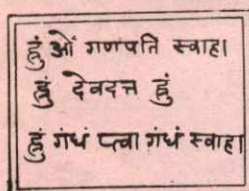 हुं ओं गणपति स्वाहा।
हुं देवदत्त हुं
हुं गंधं प्त्वा गंधं स्वाहा।